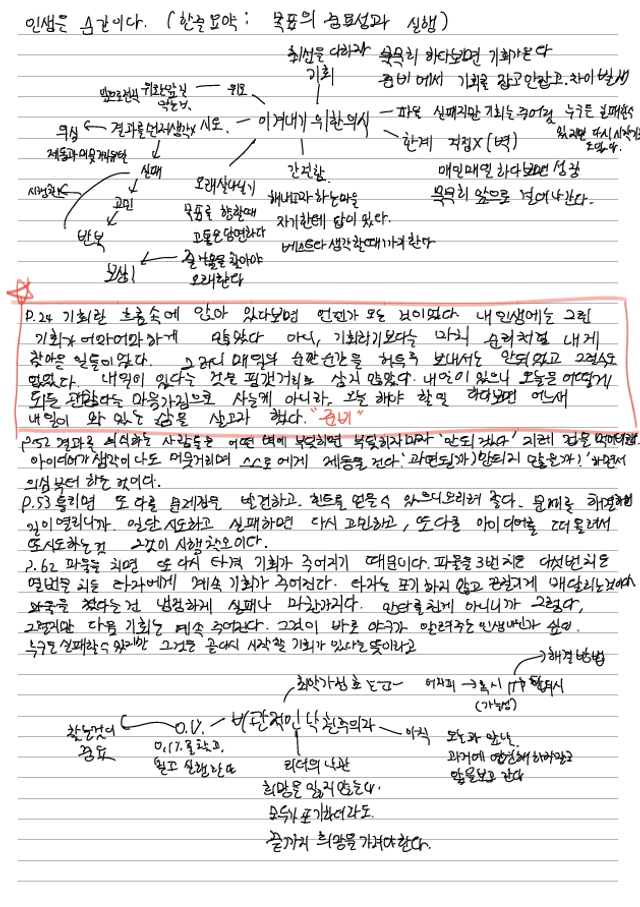 인생은 순간이다. (한줄요약: 목표의 중요성과 실행)
최선을 다하라
기회
묵묵히 하다보면 기회가온다
준비에서 기회를 잡고안잡고. 차이 발생
위로
이겨내기 위한 의식
파울 실패지만 기회는 주어짐
누구든 실패할수
있지만 다시 시작할
한계 직접X (벽)
매일매일 하다보면 성장
묵묵히 앞으로 걸어나간다.
의심
결과를먼저생각X
시도
실패
고민
반복
시행착오
오래살아남기
목표를 향할때
고통은 당연하다
즐거움을 찾아야
오래한다
간절함
해내고자 하는마음
자기한테 답이 있다.
p.24 기회란 흐름속에 앉아 있다보면 언젠가 오는 것이었다. 내 인생에는 그런
기회가 어마어마하게 많았다 아니, 기회라기보다는 마치 순리처럼 내게
찾아온 일들이었다. 그러니 매일의 순간순간을 허투루 보내서는 안되었고 그럴수도
없었다. 내일이 있다는 것을 핑곗거리로 삼지 않았다. 내일이 있으니 오늘은 어떻게
되든 괜찮다는 마음가짐으로 사는게 아니라. 오늘 해야 할 일 하다보면 어느새
내일이 와 있는 삶을 살고자 했다. "준비"
p.52 결과를 의식하는 사람들은 어떤 벽에 부딪히면 부딪히자마자 '안되겠다' 지레 겁을 먹어버림.
아이디어가 생각이 나도 머뭇거리며 스스로에게 제동을 건다. '과연될까?' '안되지 않을까?' 하면서
의심부터 하는 것이다.
p.53 틀리면 또 다른 문제점을 발견하고. 힌트를 얻을수 있으니오히려 좋다. 문제를 해결할
길이 열리니까. 일단 시도하고 실패하면 다시 고민하고, 또 다른 아이디어를 떠올려서
또 시도하는것 그것이 시행착오이다.
p.62 파울을 치면 또 다시 타격 기회가 주어지기 때문이다. 파울을 3번 치든 다섯번치든
열번을 치든 타자에게 계속 기회가 주어진다. 타자는 포기하지 않고 끈질기게 매달리는것이다
파울을 쳤다는건 냉정하게 실패나 마찬가지다. 안타를 친게 아니니까 그렇다,
그렇지만 다음 기회는 계속 주어진다. 그것이 바로 야구가 알려주는 인생아닌가 싶다.
누구든 실패할수 있지만 그것은 곧 다시 시작할 기회가 있다는 뜻이라고
해결 방법
최악가정
어차피 → 혹시
(가능성)
비관적인 낙천주의자
찾는것이
중요
0.1%
0.1%를 찾고,
아직
오늘과 앞날.
앞을보고 간다
리더의 낙관
희망을 잃지 않는다.
모두가 포기하더라도.
끝까지 희망을 가져야한다.